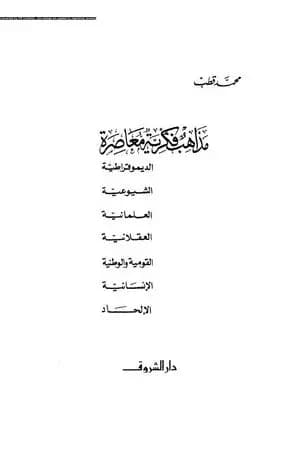 محمد قطب
مذاهب فكرية معاصرة
الديموقراطية
الشيوعية
العلمانية
العقلانية
القومية والوطنية
الإنسانية
الإلحاد
دار الشروق